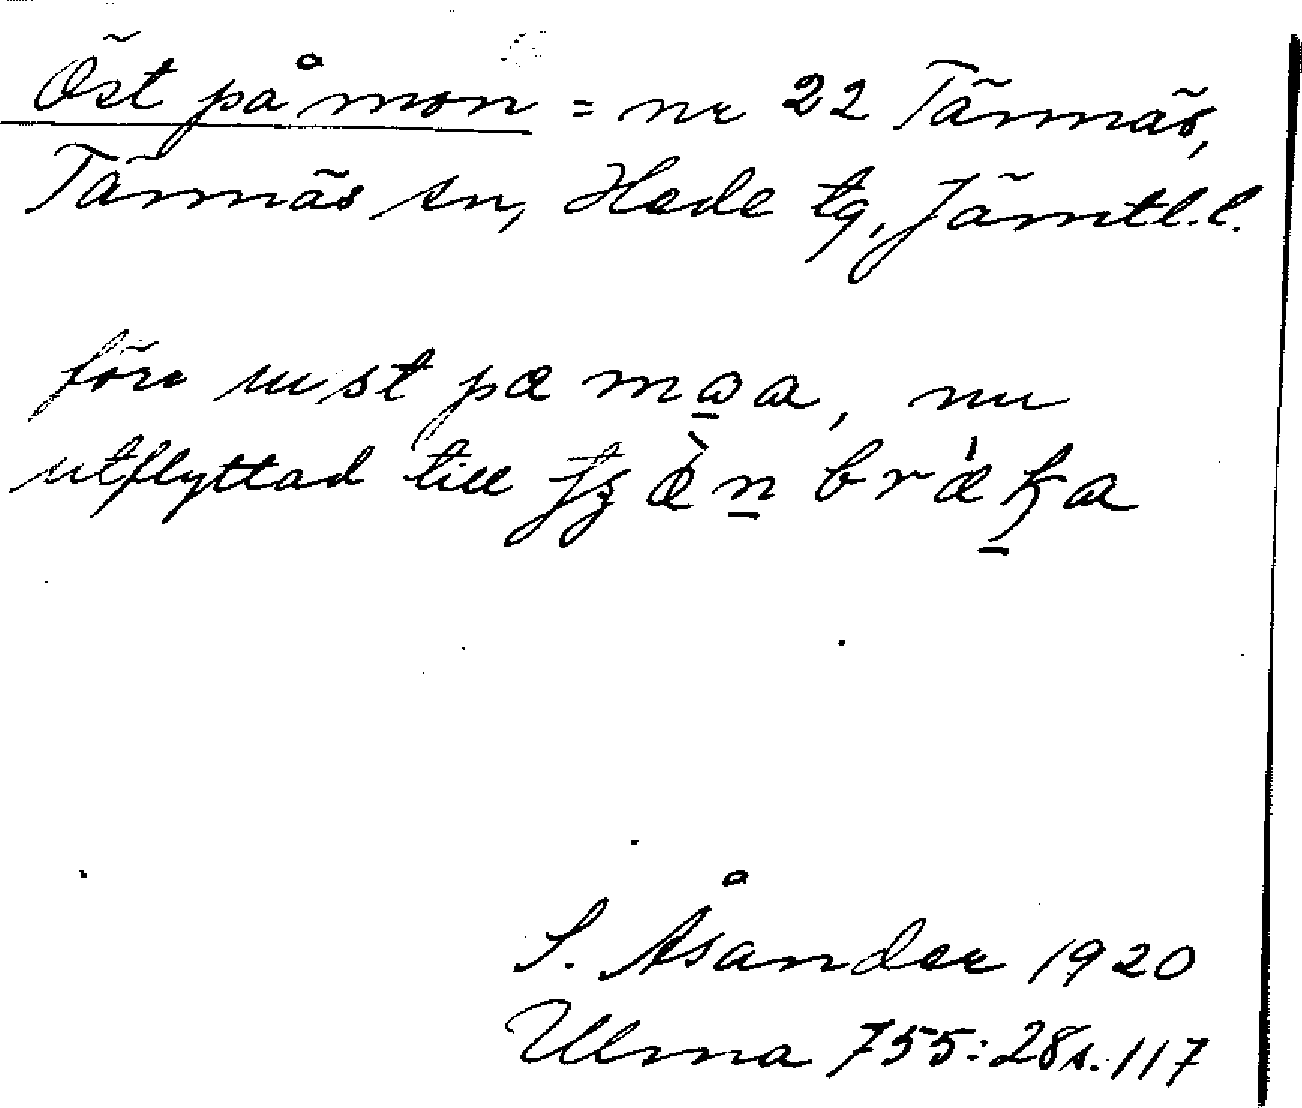 Öst på mon = nr 22 Tännäs,
Tännäs sn, Hede tg, Jämtl.l.
före ust pa maa, nu
utflyttad till
S. Åsander 1920
Ulma 755:28 s. 117